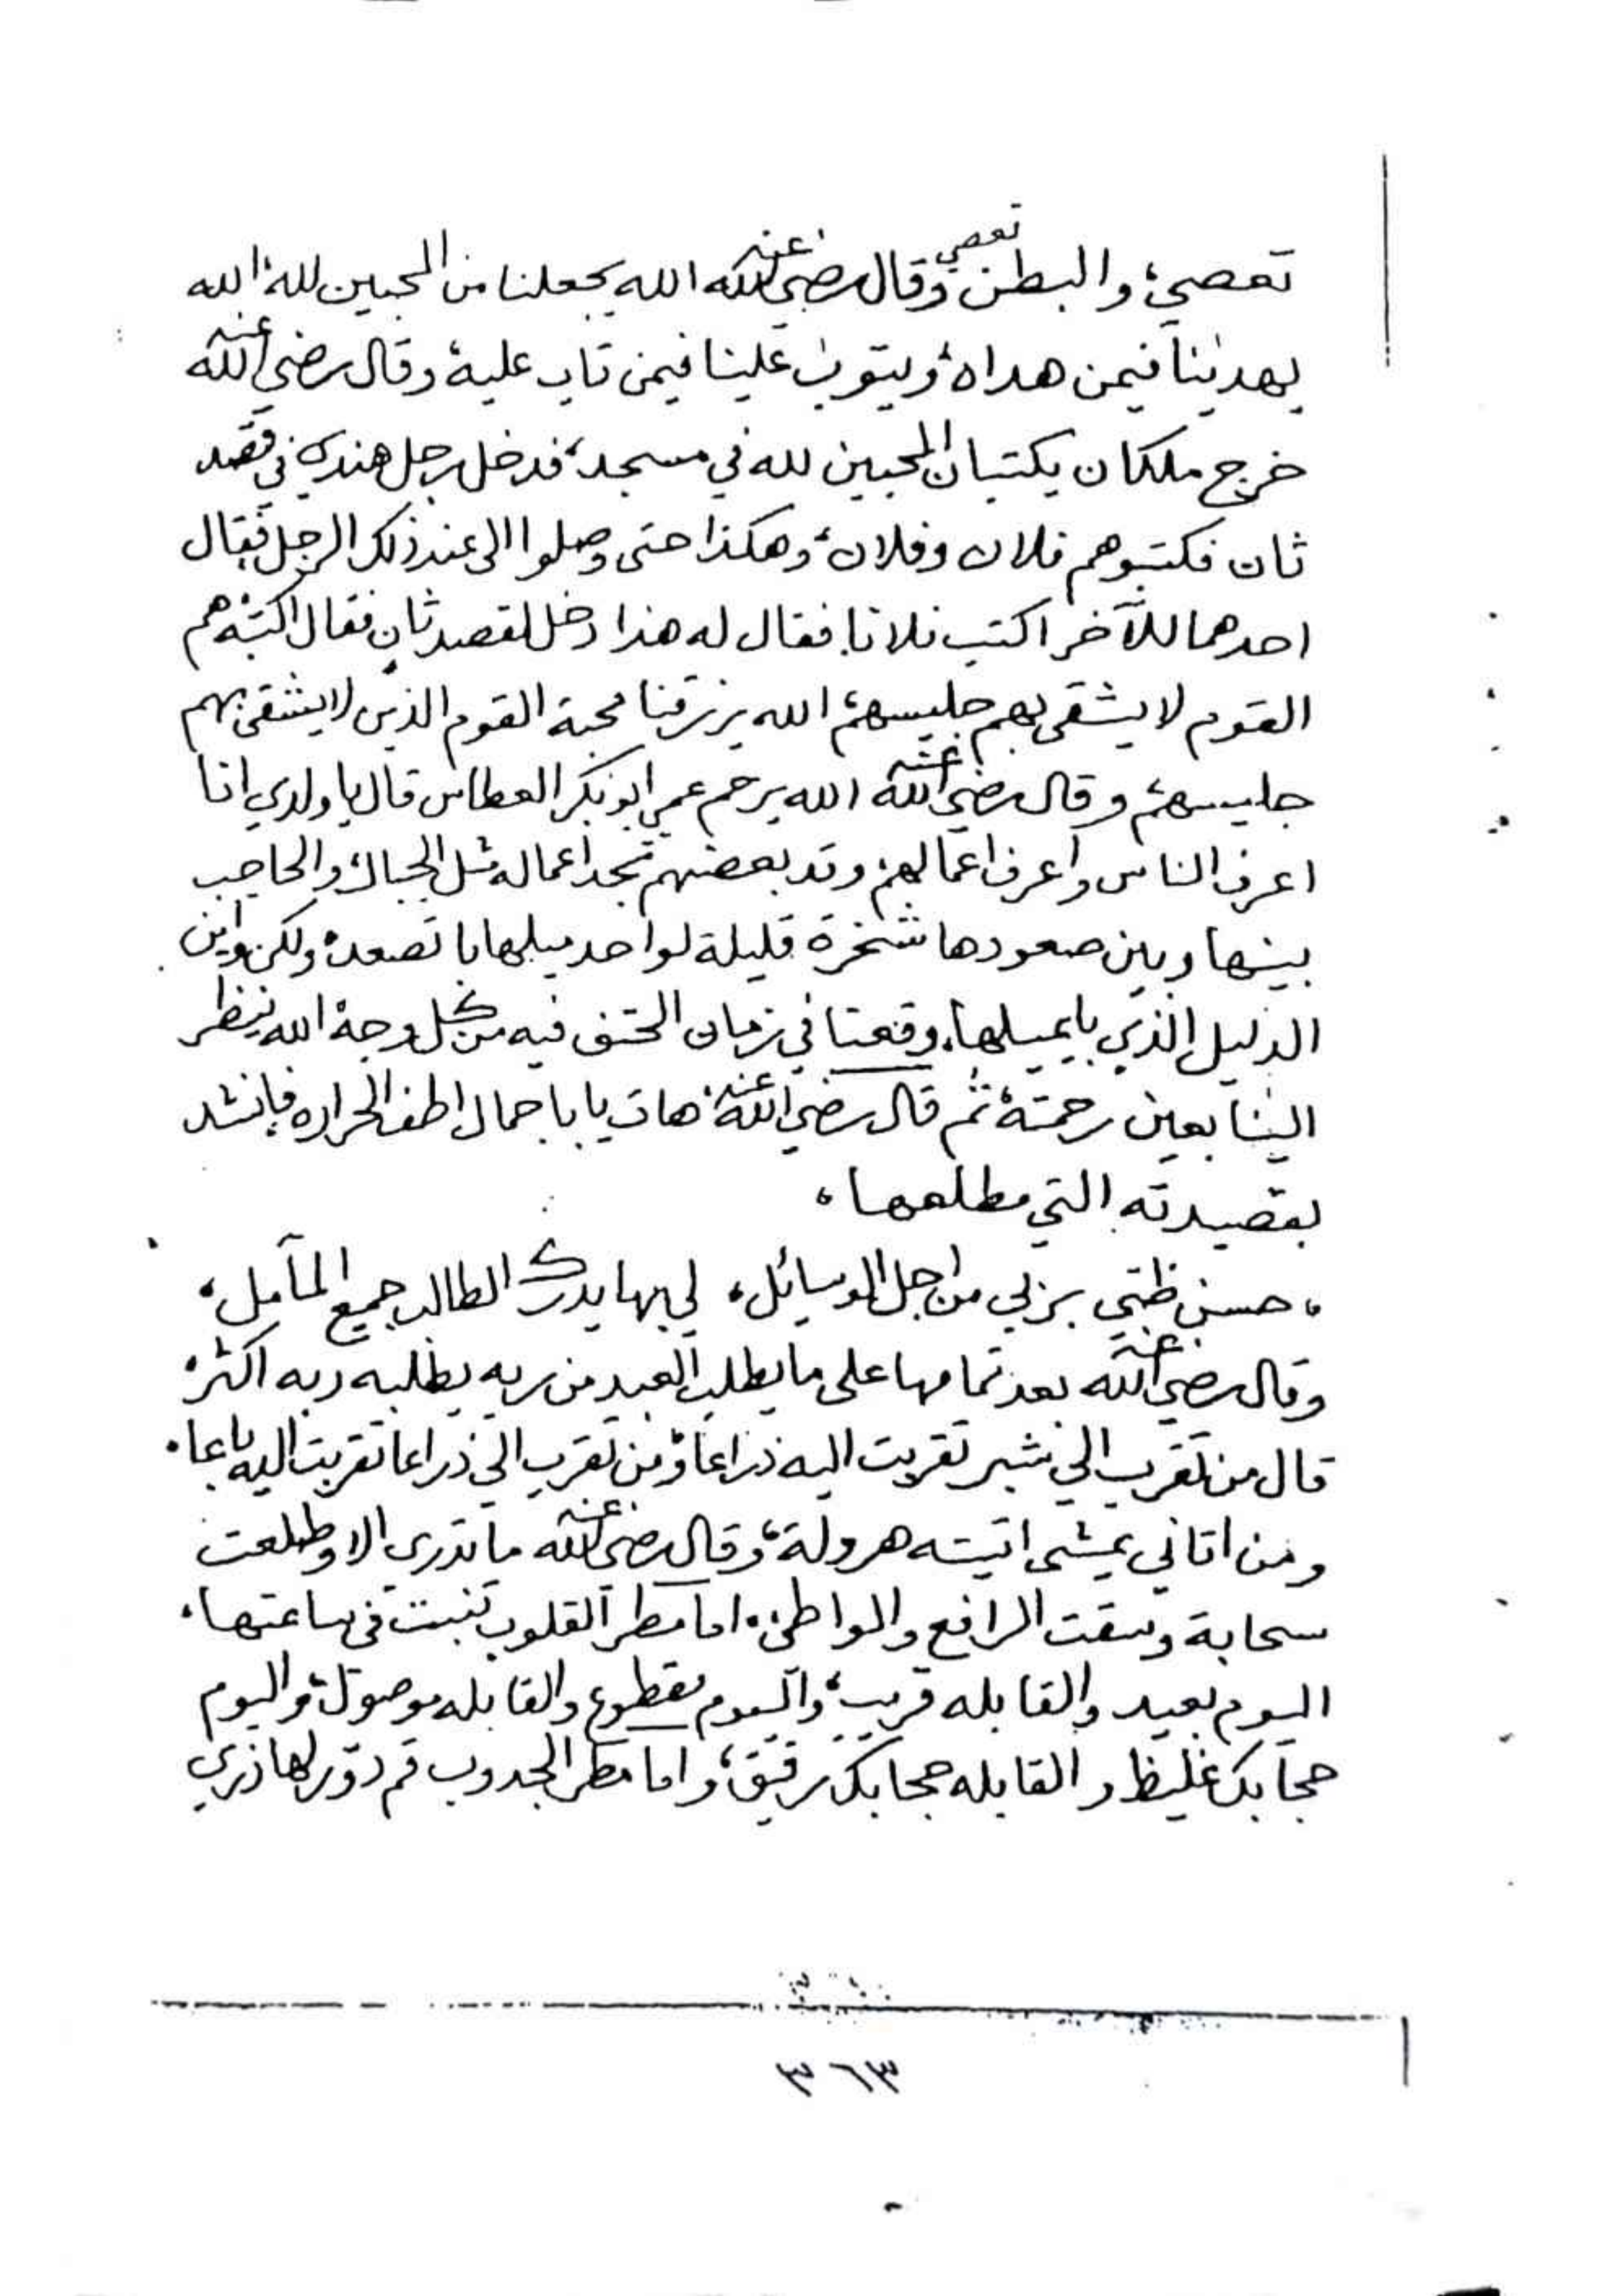 تعصي، والبطن تعصي وقال رضي الله عنه الله يجعلنا من المحبين لله، الله
يهدينا فيمن هداه، ويتوب علينا فيمن تاب عليه، وقال رضي الله عنه
خرج ملكان يكتبان المحبين لله في مسجد، فدخل رجل هندي في قصد
ثان فكتبوهم فلان وفلان، وهكذا حتى وصلوا الى عند ذلك الرجل فقال
احدهما للآخر اكتب فلانا. فقال له هذا دخل لقصد ثان فقال اكتبه هم
القوم لا يشقى بهم جليسهم، الله يرزقنا محبة القوم الذين لا يشقى بهم
جليسهم، وقال رضي الله عنه الله يرحم عمي ابوبكر العطاس قال يا ولدي انا
اعرف الناس واعرف اعمالهم وقد بعضهم تجد اعماله مثل الجبال، والحاجب
بينها وبين صعودها شخرة قليلة لواحد ميلها با تصعد، ولكن واين
الدليل الذي بايميلها، وقعنا في زمان الحتف فيه من كل وجه، الله ينظر
الينا بعين رحمته، ثم قال رضي الله عنه، هات يا باجمال اطف الحراره فانشد
بقصيدته التي مطلعها،
، حسن ظني بربي من اجل الوسائل، لي بها يدرك الطالب جميع المآمل،
وقال رضي الله عنه بعد تمامها على ما يطلب العبد من ربه يطلبه ربه اكثر،
قال من تقرب الي شبر تقربت اليه ذراعا، ومن تقرب الي ذراعا تقربت اليه باعا،
ومن اتاني يمشي اتيته هرولة، وقال رضي الله عنه ما تدري الا وطلعت
سحابة وسقت الرافع والواطئ، اما مطر القلوب تنبت في ساعتها،
اليوم بعيد والقابله قريب، واليوم مقطوع والقابله موصول، واليوم
حجابك غليظ والقابله حجابك رقيق، واما مطر الجدوب قم دور لها ذري
٣٦٣